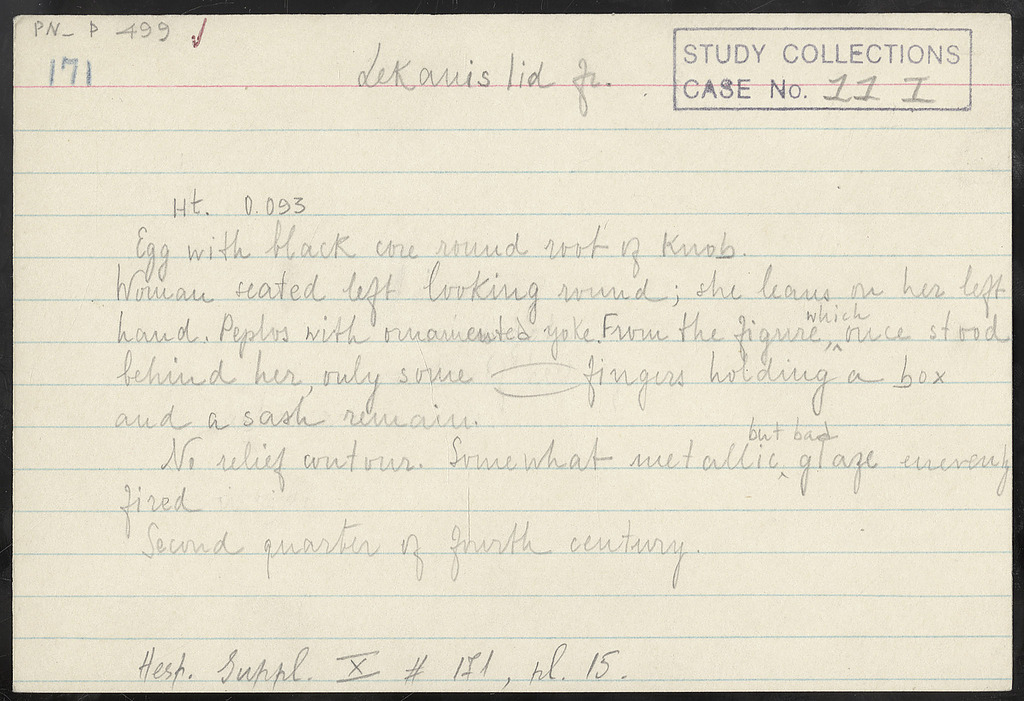 PN- P 499
171
Lekanis lid fr.
STUDY COLLECTIONS
CASE No. 11 I
Ht. 0.093
Egg with black core round root of knob.
Woman seated left looking round; she leans on her left
hand. Peplos with ornamented yoke. From the figure, which once stood
behind her, only some fingers holding a box
and a sash remain.
No relief contour. Somewhat metallic but bad glaze unevenly
fired
Second quarter of fourth century.
Hesp. Suppl. X # 171, pl. 15.